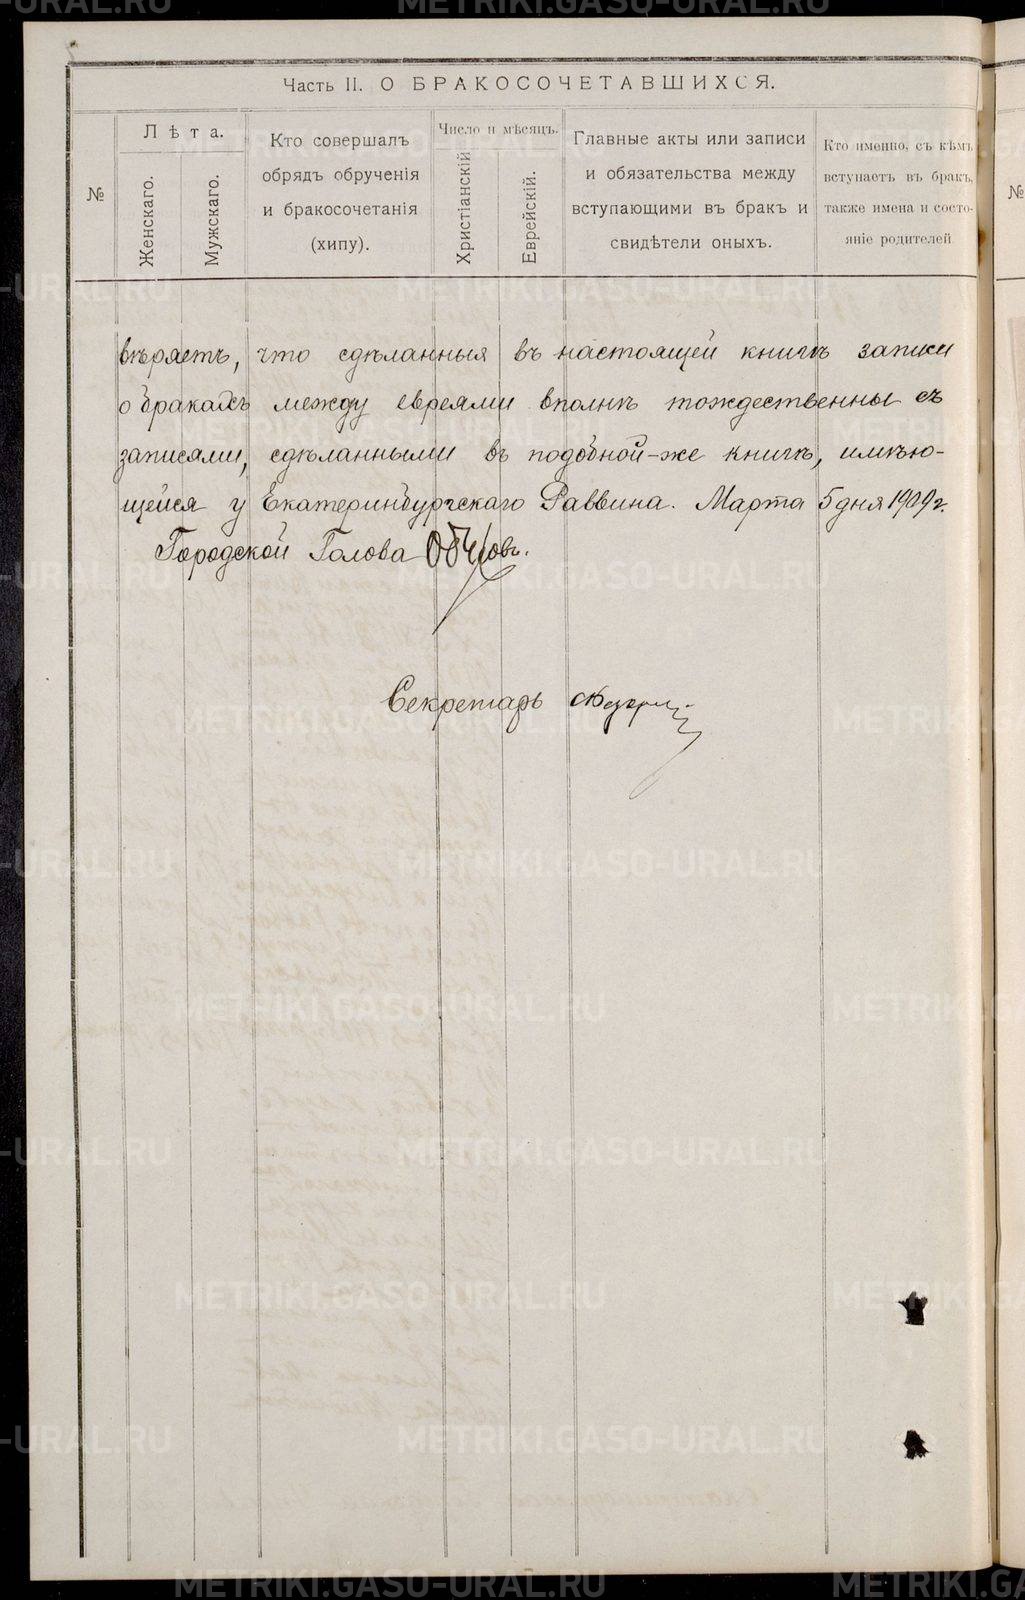 Часть II. О БРАКОСОЧЕТАВШИХСЯ.
№
Лѣта.
Женскаго.
Мужскаго.
Кто совершалъ
обрядъ обрученія
и бракосочетанія
(хипу).
Число и мѣсяцъ.
Христіанскій
Еврейскій.
Главные акты или записи
и обязательства между
вступающими въ бракъ и
свидѣтели оныхъ.
Кто именно, съ кѣмъ
вступаетъ въ бракъ,
также имена и состо-
яніе родителей
№
вѣряетъ, что сдѣланныя въ настоящей книгѣ записи
о бракахъ между евреями вполнѣ тождественны съ
записями, сдѣланными въ подобной-же книгѣ, имѣю-
щейся у Екатеринбургскаго Раввина. Марта 5 дня 1909 г.
Городской Голова Обуховъ.
Секретарь
METRIKI.GASO-URAL.RU